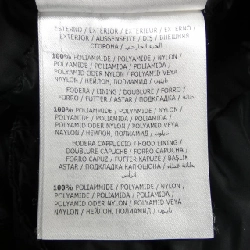 ESTERNO / EXTERIOR / EXTERIEUR / EXTERNO /
EXTERIOR / AUSSENSEITE / DIŞ / ВНЕШНЯЯ
СТОРОНА /
100% POLIAMMIDE / POLYAMIDE / NYLON /
POLYAMIDE / POLIAMIDA / POLIAMIDA /
POLYAMID ODER NYLON / POLYAMID VEYA
NAYLON / НЕЙЛОН, ПОЛИАМИД /
FODERA / LINING / DOUBLURE / FORRO /
FORRO / FUTTER / ASTAR / ПОДКЛАДКА /
100% POLIAMMIDE / POLYAMIDE / NYLON /
POLYAMIDE / POLIAMIDA / POLIAMIDA /
POLYAMID ODER NYLON / POLYAMID VEYA
NAYLON / НЕЙЛОН, ПОЛИАМИД /
FODERA CAPPUCCIO / HOOD LINING /
DOUBLURE CAPUCHE / FORRO CAPUCHA /
FORRO CAPUZ / FUTTER KAPUZE / BAŞLIK
ASTARI / ПОДКЛАДКА КАПЮШОНА /
100% POLIAMMIDE / POLYAMIDE / NYLON /
POLYAMIDE / POLIAMIDA / POLIAMIDA /
POLYAMID ODER NYLON / POLYAMID VEYA
NAYLON / НЕЙЛОН, ПОЛИАМИД /